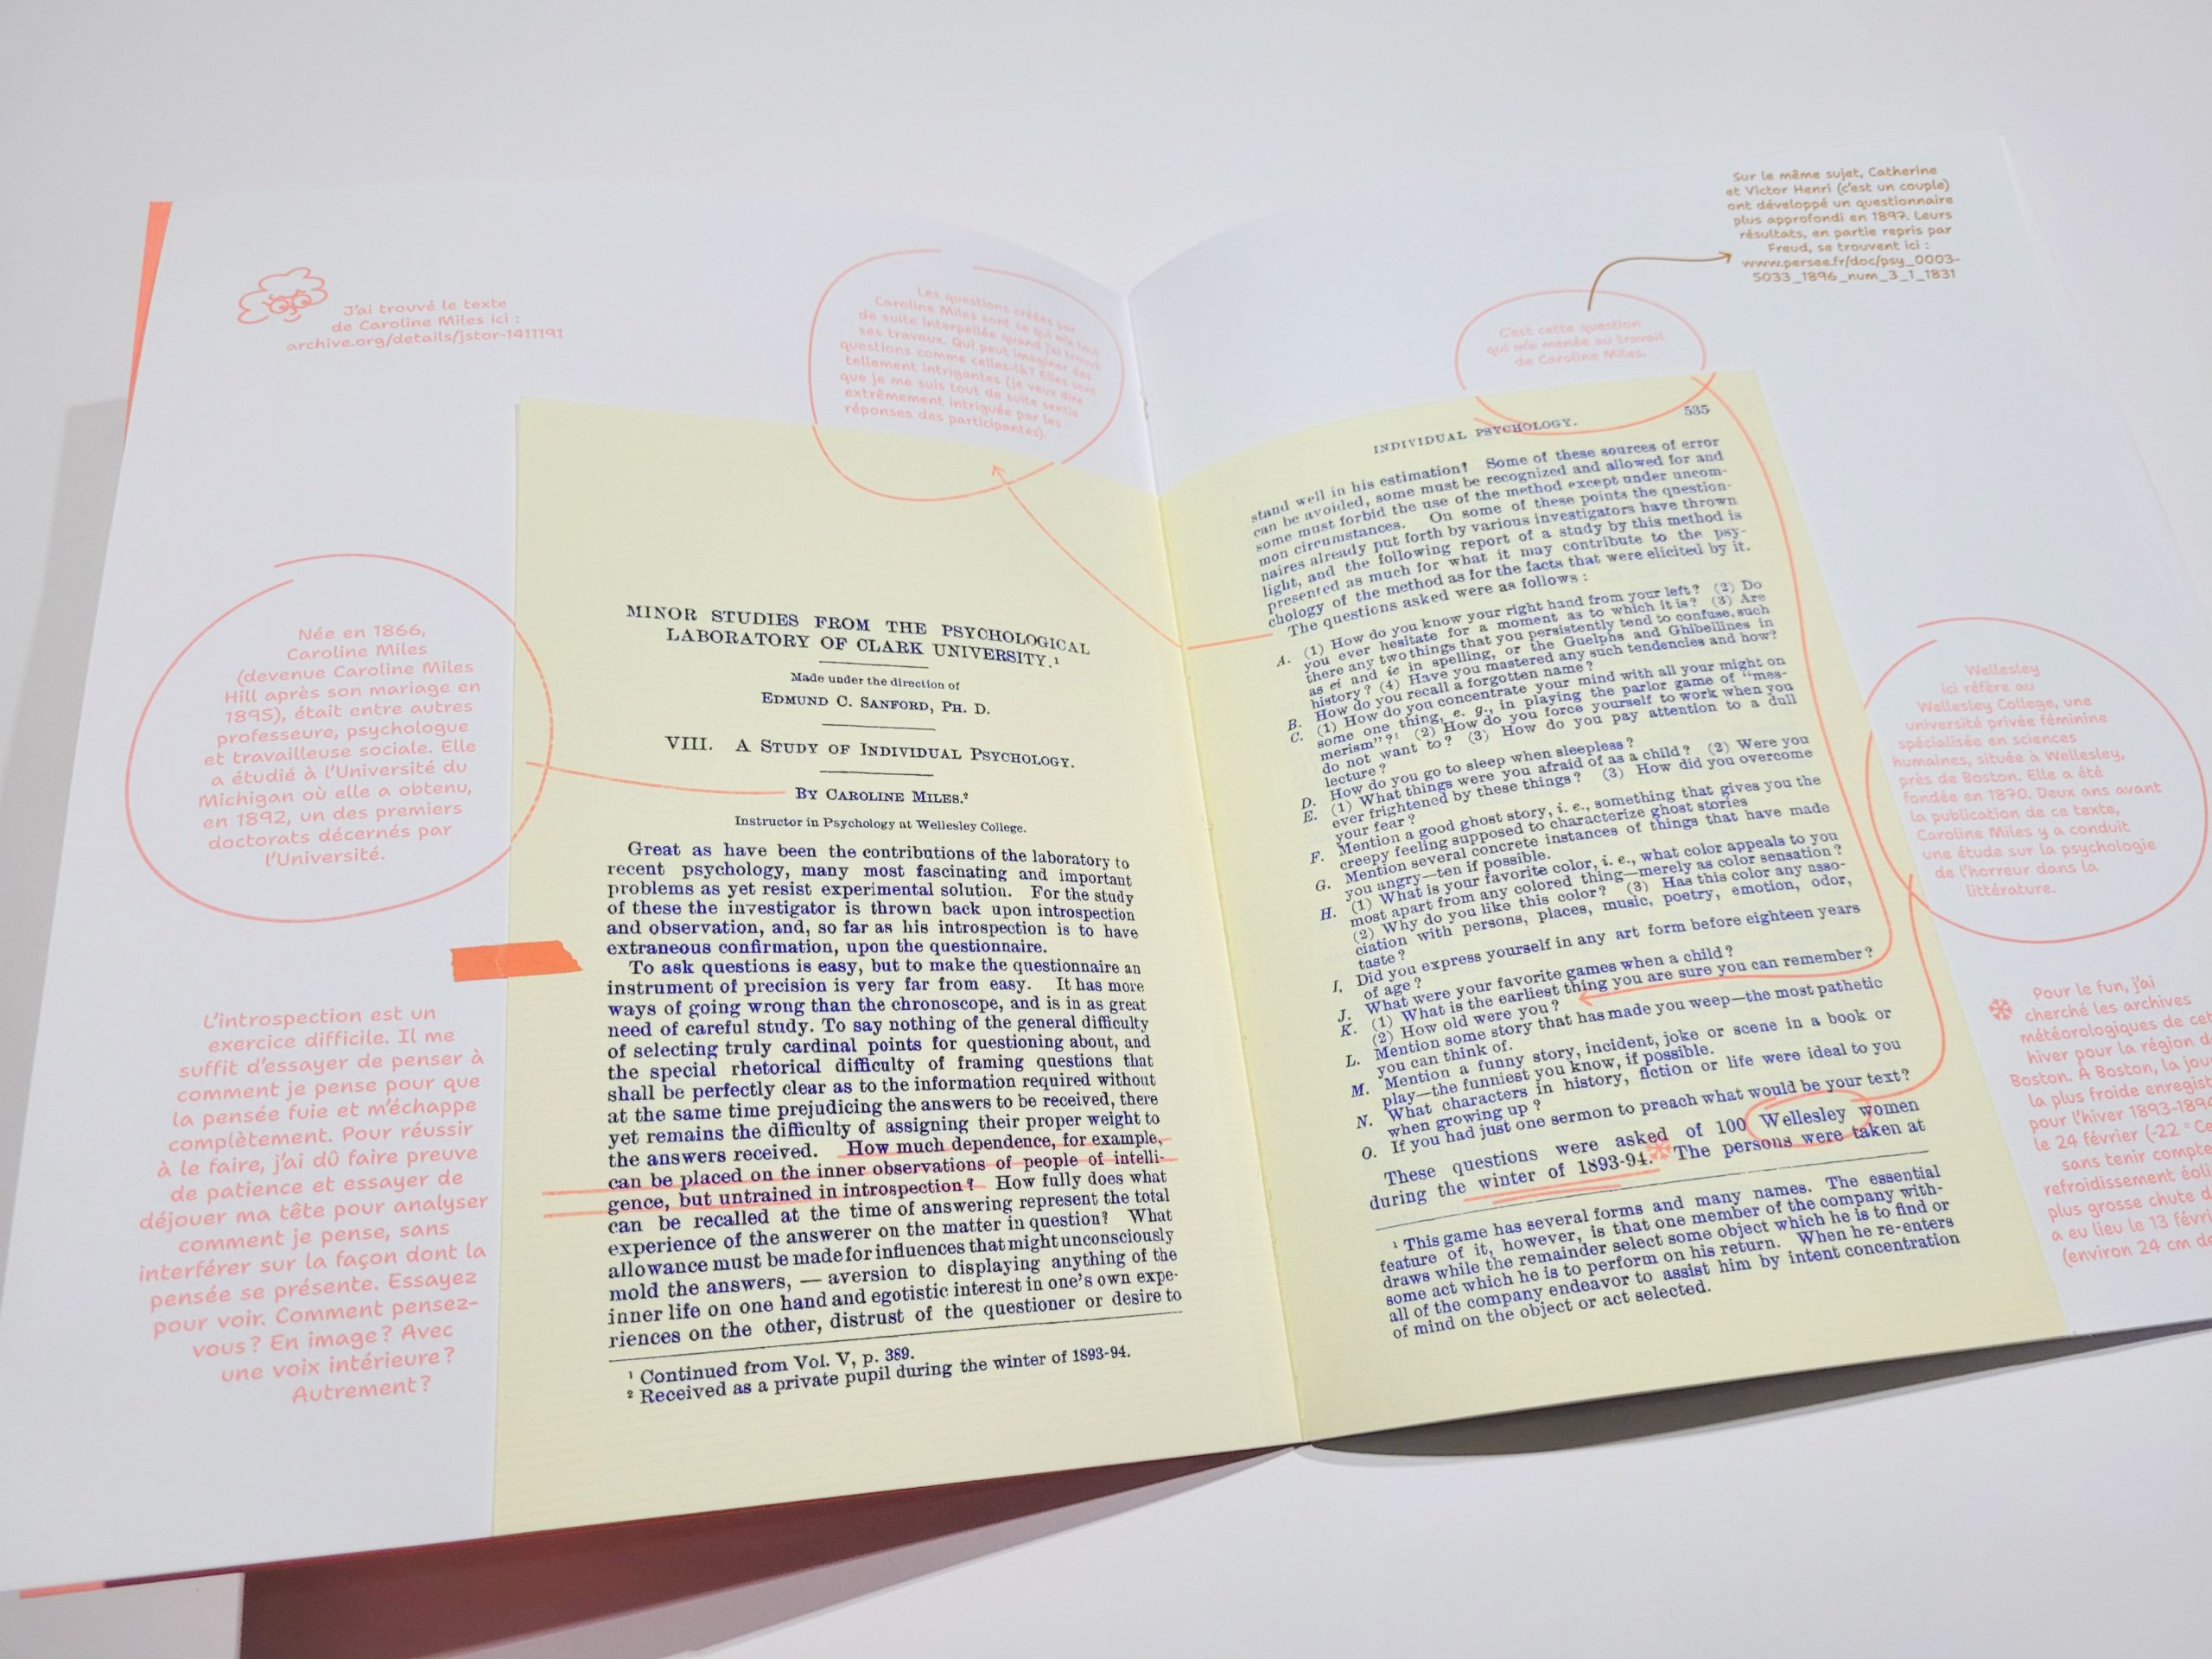 J'ai trouvé le texte
de Caroline Miles ici :
archive.org/details/jstor-1411191
Les questions créées par
Caroline Miles sont ce qui m'a tout
de suite interpellée quand j'ai trouvé
ses travaux. Qui peut imaginer des
questions comme celles-là? Elles sont
tellement intrigantes (je veux dire
que je me suis tout de suite sentie
extrêmement intriguée par les
réponses des participantes).
Née en 1866,
Caroline Miles
(devenue Caroline Miles
Hill après son mariage en
1895), était entre autres
professeure, psychologue
et travailleuse sociale. Elle
a étudié à l'Université du
Michigan où elle a obtenu,
en 1892, un des premiers
doctorats décernés par
l'Université.
L'introspection est un
exercice difficile. Il me
suffit d'essayer de penser à
comment je pense pour que
la pensée fuie et m'échappe
complètement. Pour réussir
à le faire, j'ai dû faire preuve
de patience et essayer de
déjouer ma tête pour analyser
comment je pense, sans
interférer sur la façon dont la
pensée se présente. Essayez
pour voir. Comment pensez-
vous? En image? Avec
une voix intérieure?
Autrement?
MINOR STUDIES FROM THE PSYCHOLOGICAL
LABORATORY OF CLARK UNIVERSITY.¹
Made under the direction of
EDMUND C. SANFORD, PH. D.
VIII. A STUDY OF INDIVIDUAL PSYCHOLOGY.
BY CAROLINE MILES.²
Instructor in Psychology at Wellesley College.
Great as have been the contributions of the laboratory to
recent psychology, many most fascinating and important
problems as yet resist experimental solution. For the study
of these the investigator is thrown back upon introspection
and observation, and, so far as his introspection is to have
extraneous confirmation, upon the questionnaire.
To ask questions is easy, but to make the questionnaire an
instrument of precision is very far from easy. It has more
ways of going wrong than the chronoscope, and is in as great
need of careful study. To say nothing of the general difficulty
of selecting truly cardinal points for questioning about, and
the special rhetorical difficulty of framing questions that
shall be perfectly clear as to the information required without
at the same time prejudicing the answers to be received, there
yet remains the difficulty of assigning their proper weight to
the answers received. How much dependence, for example,
can be placed on the inner observations of people of intelli-
gence, but untrained in introspection? How fully does what
can be recalled at the time of answering represent the total
experience of the answerer on the matter in question? What
allowance must be made for influences that might unconsciously
mold the answers, — aversion to displaying anything of the
inner life on one hand and egotistic interest in one's own expe-
riences on the other, distrust of the questioner or desire to
¹ Continued from Vol. V, p. 389.
² Received as a private pupil during the winter of 1893-94.
Sur le même sujet, Catherine
et Victor Henri (c'est un couple)
ont développé un questionnaire
plus approfondi en 1897. Leurs
résultats, en partie repris par
Freud, se trouvent ici :
www.persee.fr/doc/psy_0003-
5033_1896_num_3_1_1831
C'est cette question
qui m'a menée au travail
de Caroline Miles.
INDIVIDUAL PSYCHOLOGY. 535
stand well in his estimation? Some of these sources of error
can be avoided, some must be recognized and allowed for and
some must forbid the use of the method except under uncom-
mon circumstances. On some of these points the question-
naires already put forth by various investigators have thrown
light, and the following report of a study by this method is
presented as much for what it may contribute to the psy-
chology of the method as for the facts that were elicited by it.
The questions asked were as follows :
A. (1) How do you know your right hand from your left? (2) Do
you ever hesitate for a moment as to which it is? (3) Are
there any two things that you persistently tend to confuse, such
as ei and ie in spelling, or the Guelphs and Ghibellines in
history? (4) Have you mastered any such tendencies and how?
B. How do you recall a forgotten name?
C. (1) How do you concentrate your mind with all your might on
some one thing, e. g., in playing the parlor game of "mes-
merism"?¹ (2) How do you force yourself to work when you
do not want to? (3) How do you pay attention to a dull
lecture?
D. How do you go to sleep when sleepless?
E. (1) What things were you afraid of as a child? (2) Were you
ever frightened by these things? (3) How did you overcome
your fear?
F. Mention a good ghost story, i. e., something that gives you the
creepy feeling supposed to characterize ghost stories
G. Mention several concrete instances of things that have made
you angry—ten if possible.
H. (1) What is your favorite color, i. e., what color appeals to you
most apart from any colored thing—merely as color sensation?
(2) Why do you like this color? (3) Has this color any asso-
ciation with persons, places, music, poetry, emotion, odor,
taste?
I. Did you express yourself in any art form before eighteen years
of age?
J. What were your favorite games when a child?
K. (1) What is the earliest thing you are sure you can remember?
(2) How old were you?
L. Mention some story that has made you weep—the most pathetic
you can think of.
M. Mention a funny story, incident, joke or scene in a book or
play—the funniest you know, if possible.
N. What characters in history, fiction or life were ideal to you
when growing up?
O. If you had just one sermon to preach what would be your text?
These questions were asked of 100 Wellesley women
during the winter of 1893-94. The persons were taken at
¹ This game has several forms and many names. The essential
feature of it, however, is that one member of the company with-
draws while the remainder select some object which he is to find or
some act which he is to perform on his return. When he re-enters
all of the company endeavor to assist him by intent concentration
of mind on the object or act selected.
Wellesley
ici réfère au
Wellesley College, une
université privée féminine
spécialisée en sciences
humaines, située à Wellesley,
près de Boston. Elle a été
fondée en 1870. Deux ans avant
la publication de ce texte,
Caroline Miles y a conduit
une étude sur la psychologie
de l'horreur dans la
littérature.
Pour le fun, j'ai
cherché les archives
météorologiques de cet
hiver pour la région
Boston. À Boston, la
la plus froide
pour l'hiver
le 24 février (-22 °
sans tenir compte
refroidissement
plus grosse chute
a eu lieu le 13
(environ 24 cm